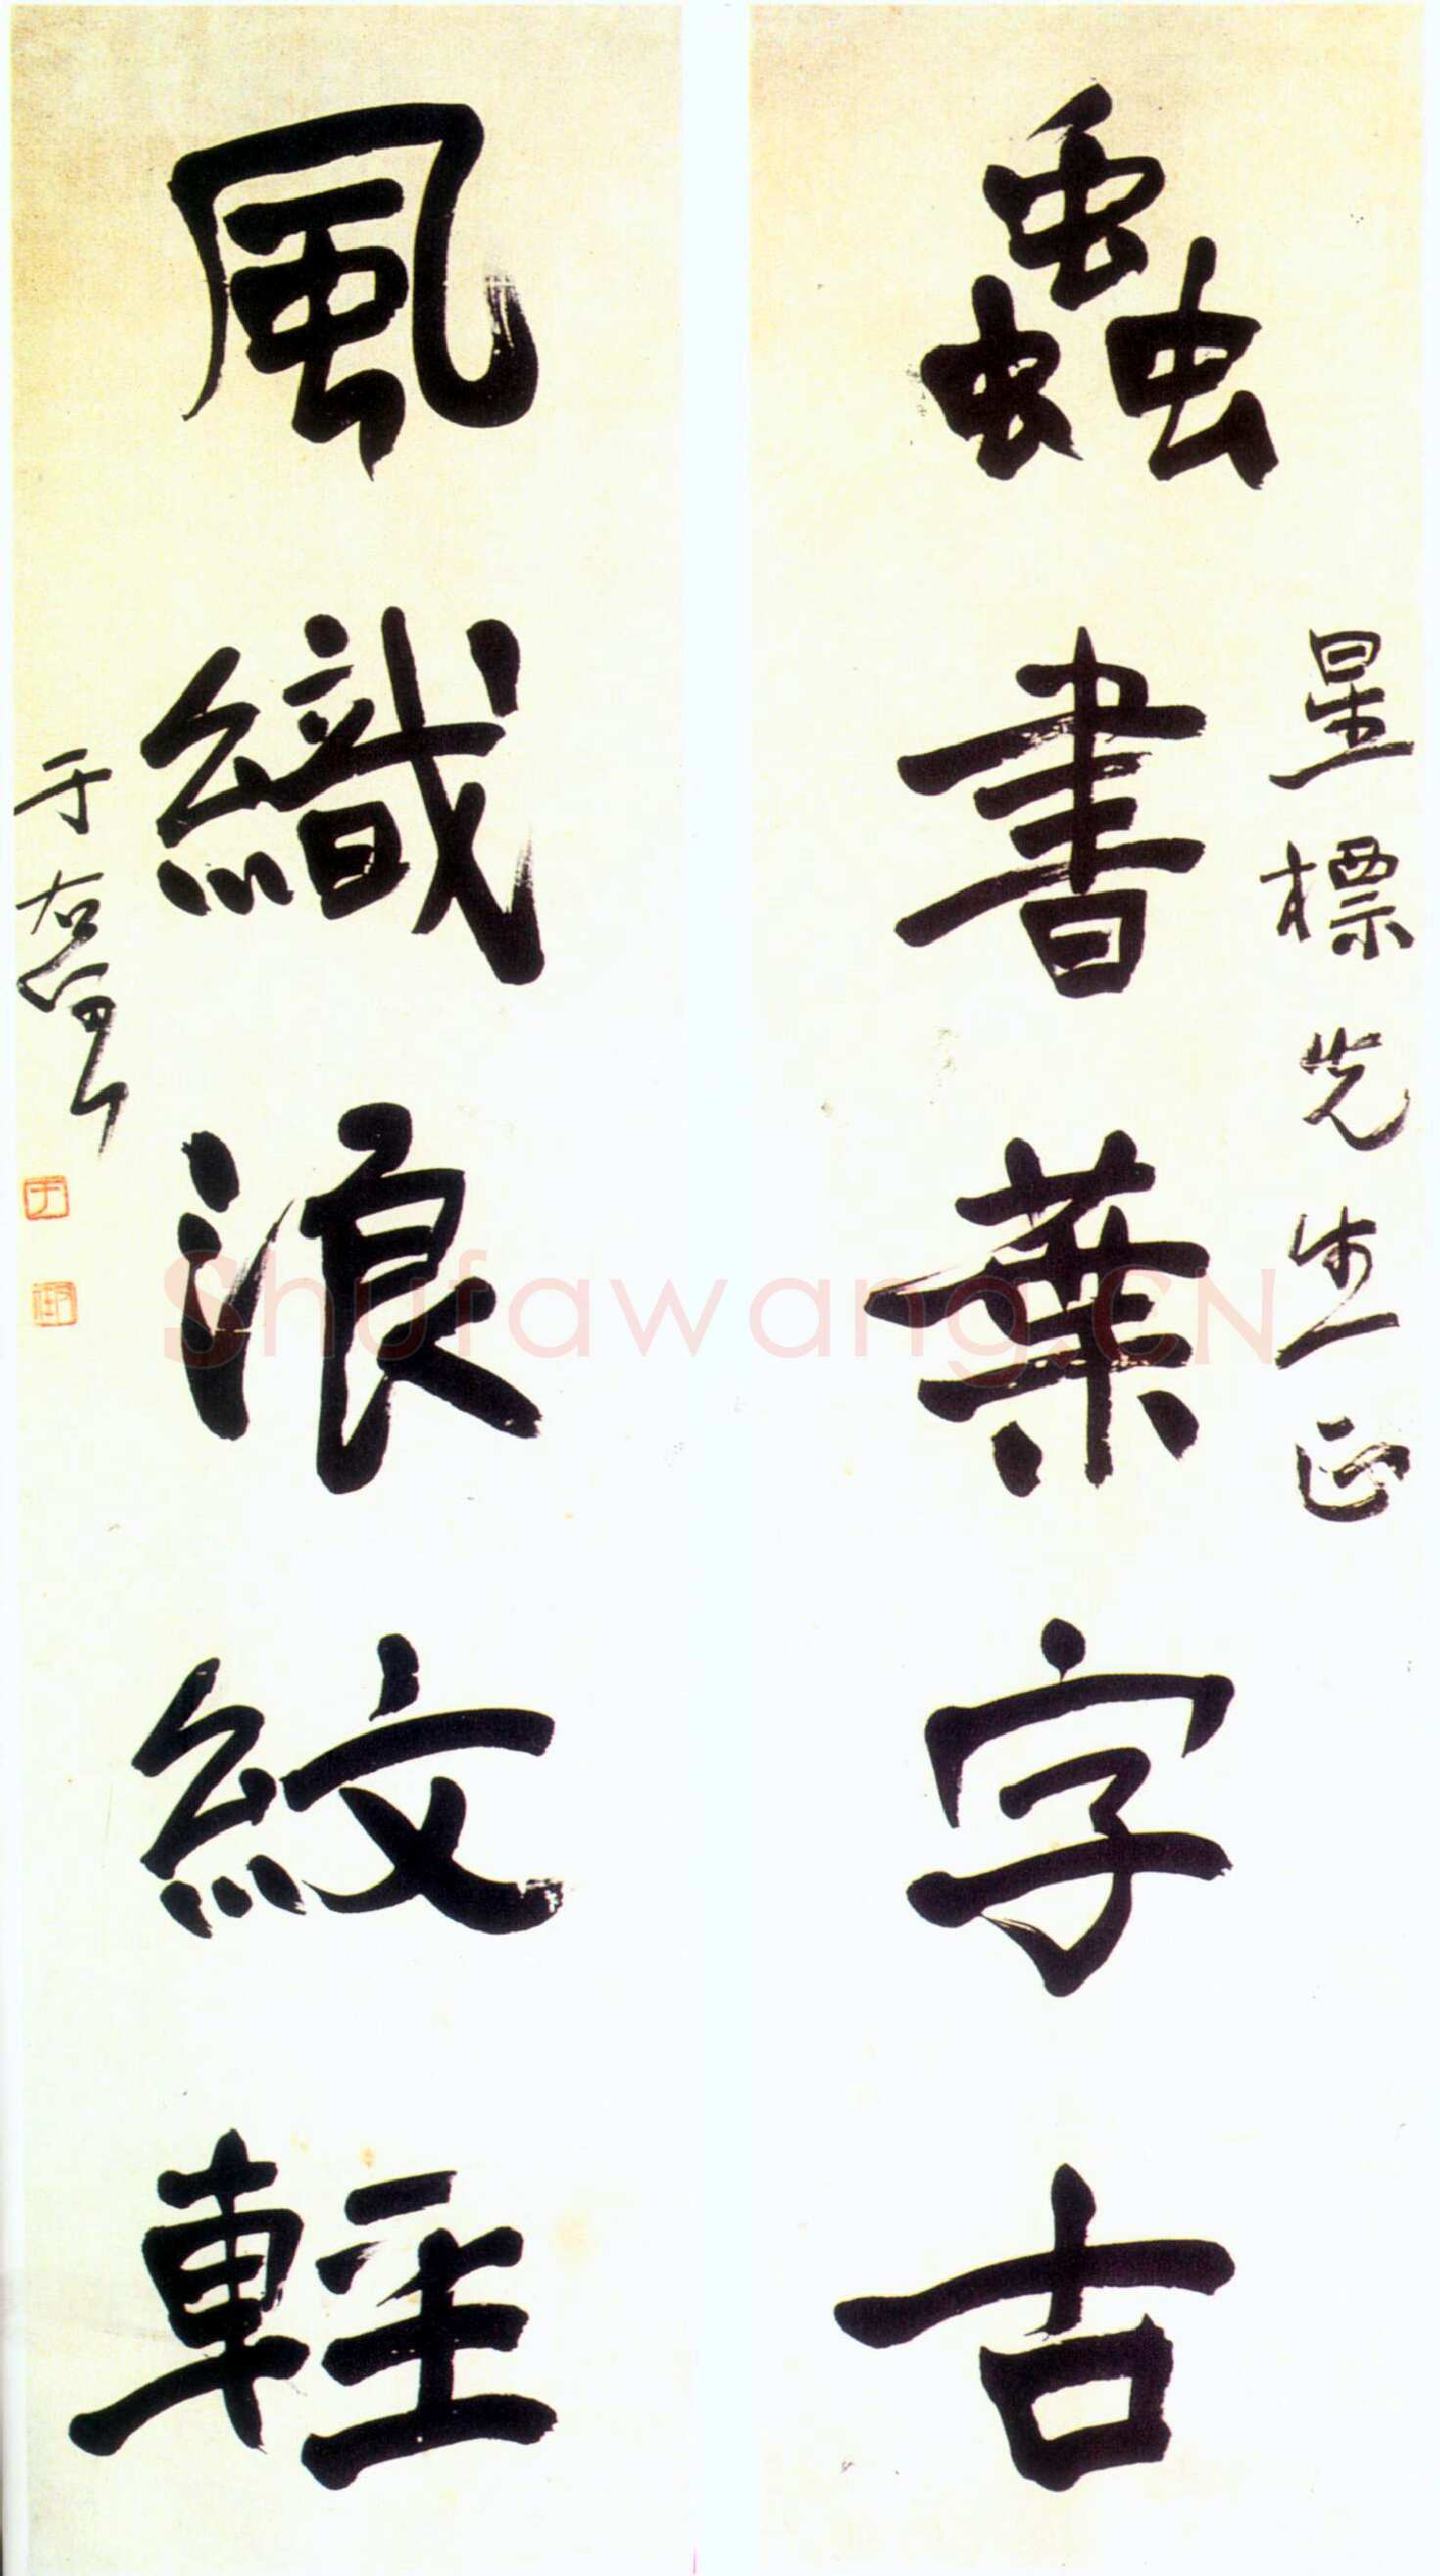 蟲書葉字古
星標先生正
風織浪紋輕
于右任
Shufawang.CN